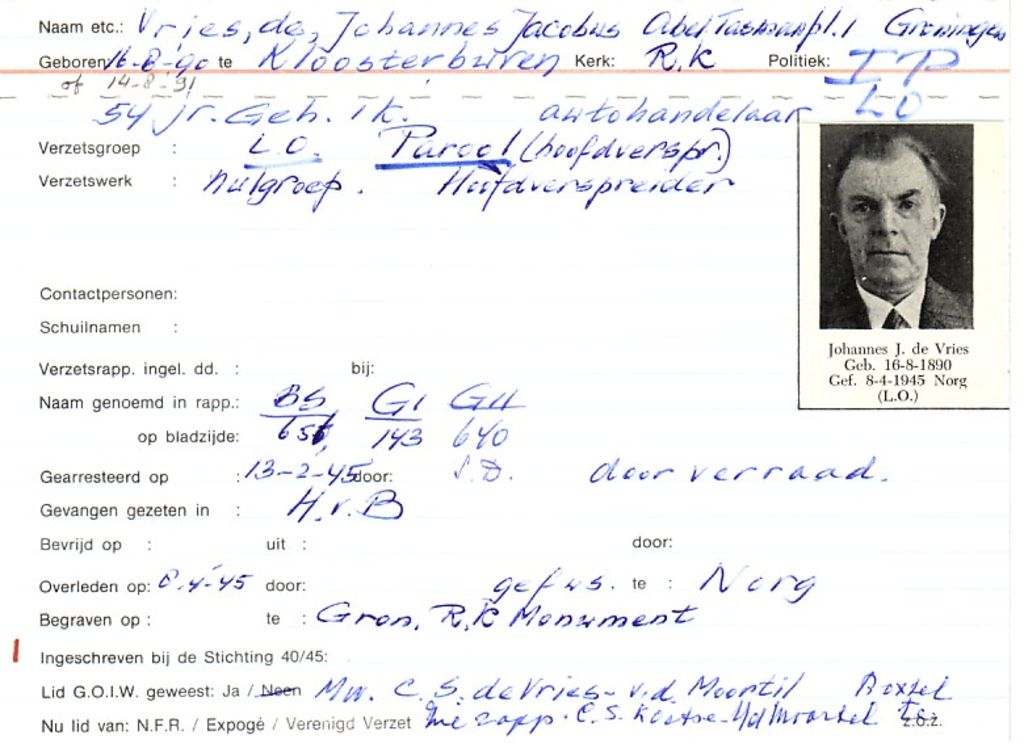 Naam etc.: Vries, de, Johannes Jacobus Abel Tasmanpl. 1 Groningen
Geboren 16-8-90 te Kloosterburen Kerk: R.K Politiek:
of 14-8-'91
IP
LO
54 jr. Geh. 1 k. autohandelaar
Verzetsgroep : L.O. Parool (hoofdverspr.)
Verzetswerk : Hoofdverspreider
Contactpersonen:
Schuilnamen :
Johannes J. de Vries
Geb. 16-8-1890
Gef. 8-4-1945 Norg
(L.O.)
Verzetsrapp. ingel. dd. : bij:
Naam genoemd in rapp.: BS, GI GII
op bladzijde: 143 640
Gearresteerd op : 13-2-'45 door: S.D. door verraad.
Gevangen gezeten in : H.v.B
Bevrijd op : uit : door:
Overleden op: 8.4-'45 door: te : Norg
Begraven op : te : Gron. R.K Monument
Ingeschreven bij de Stichting 40/45:
Lid G.O.I.W. geweest: Ja / Neen Mw. C. S. de Vries - v.d. Boxtel
Nu lid van: N.F.R. / Expogé / Verenigd Verzet rapp. C. S. z.o.z.